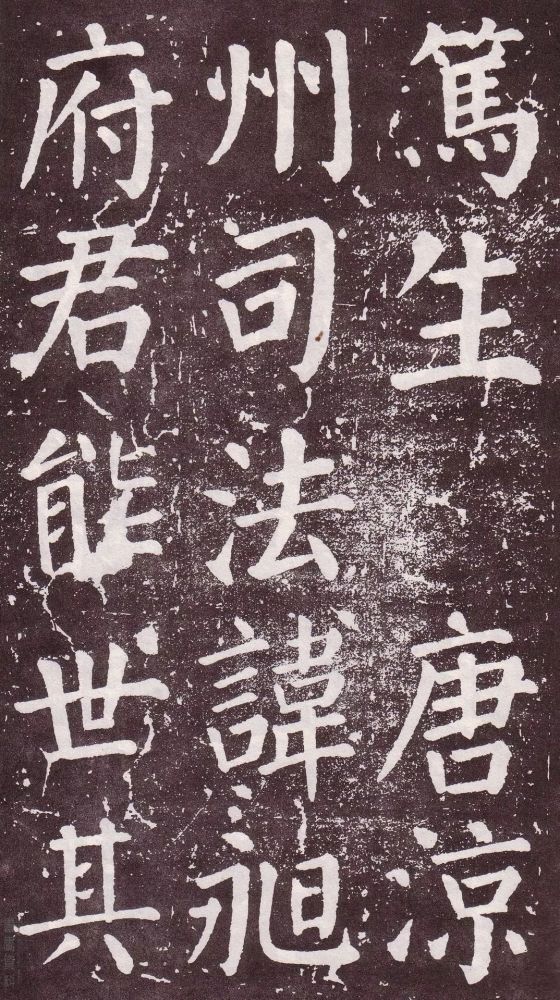 篤生　唐涼
州司法諱昶
府君能世其